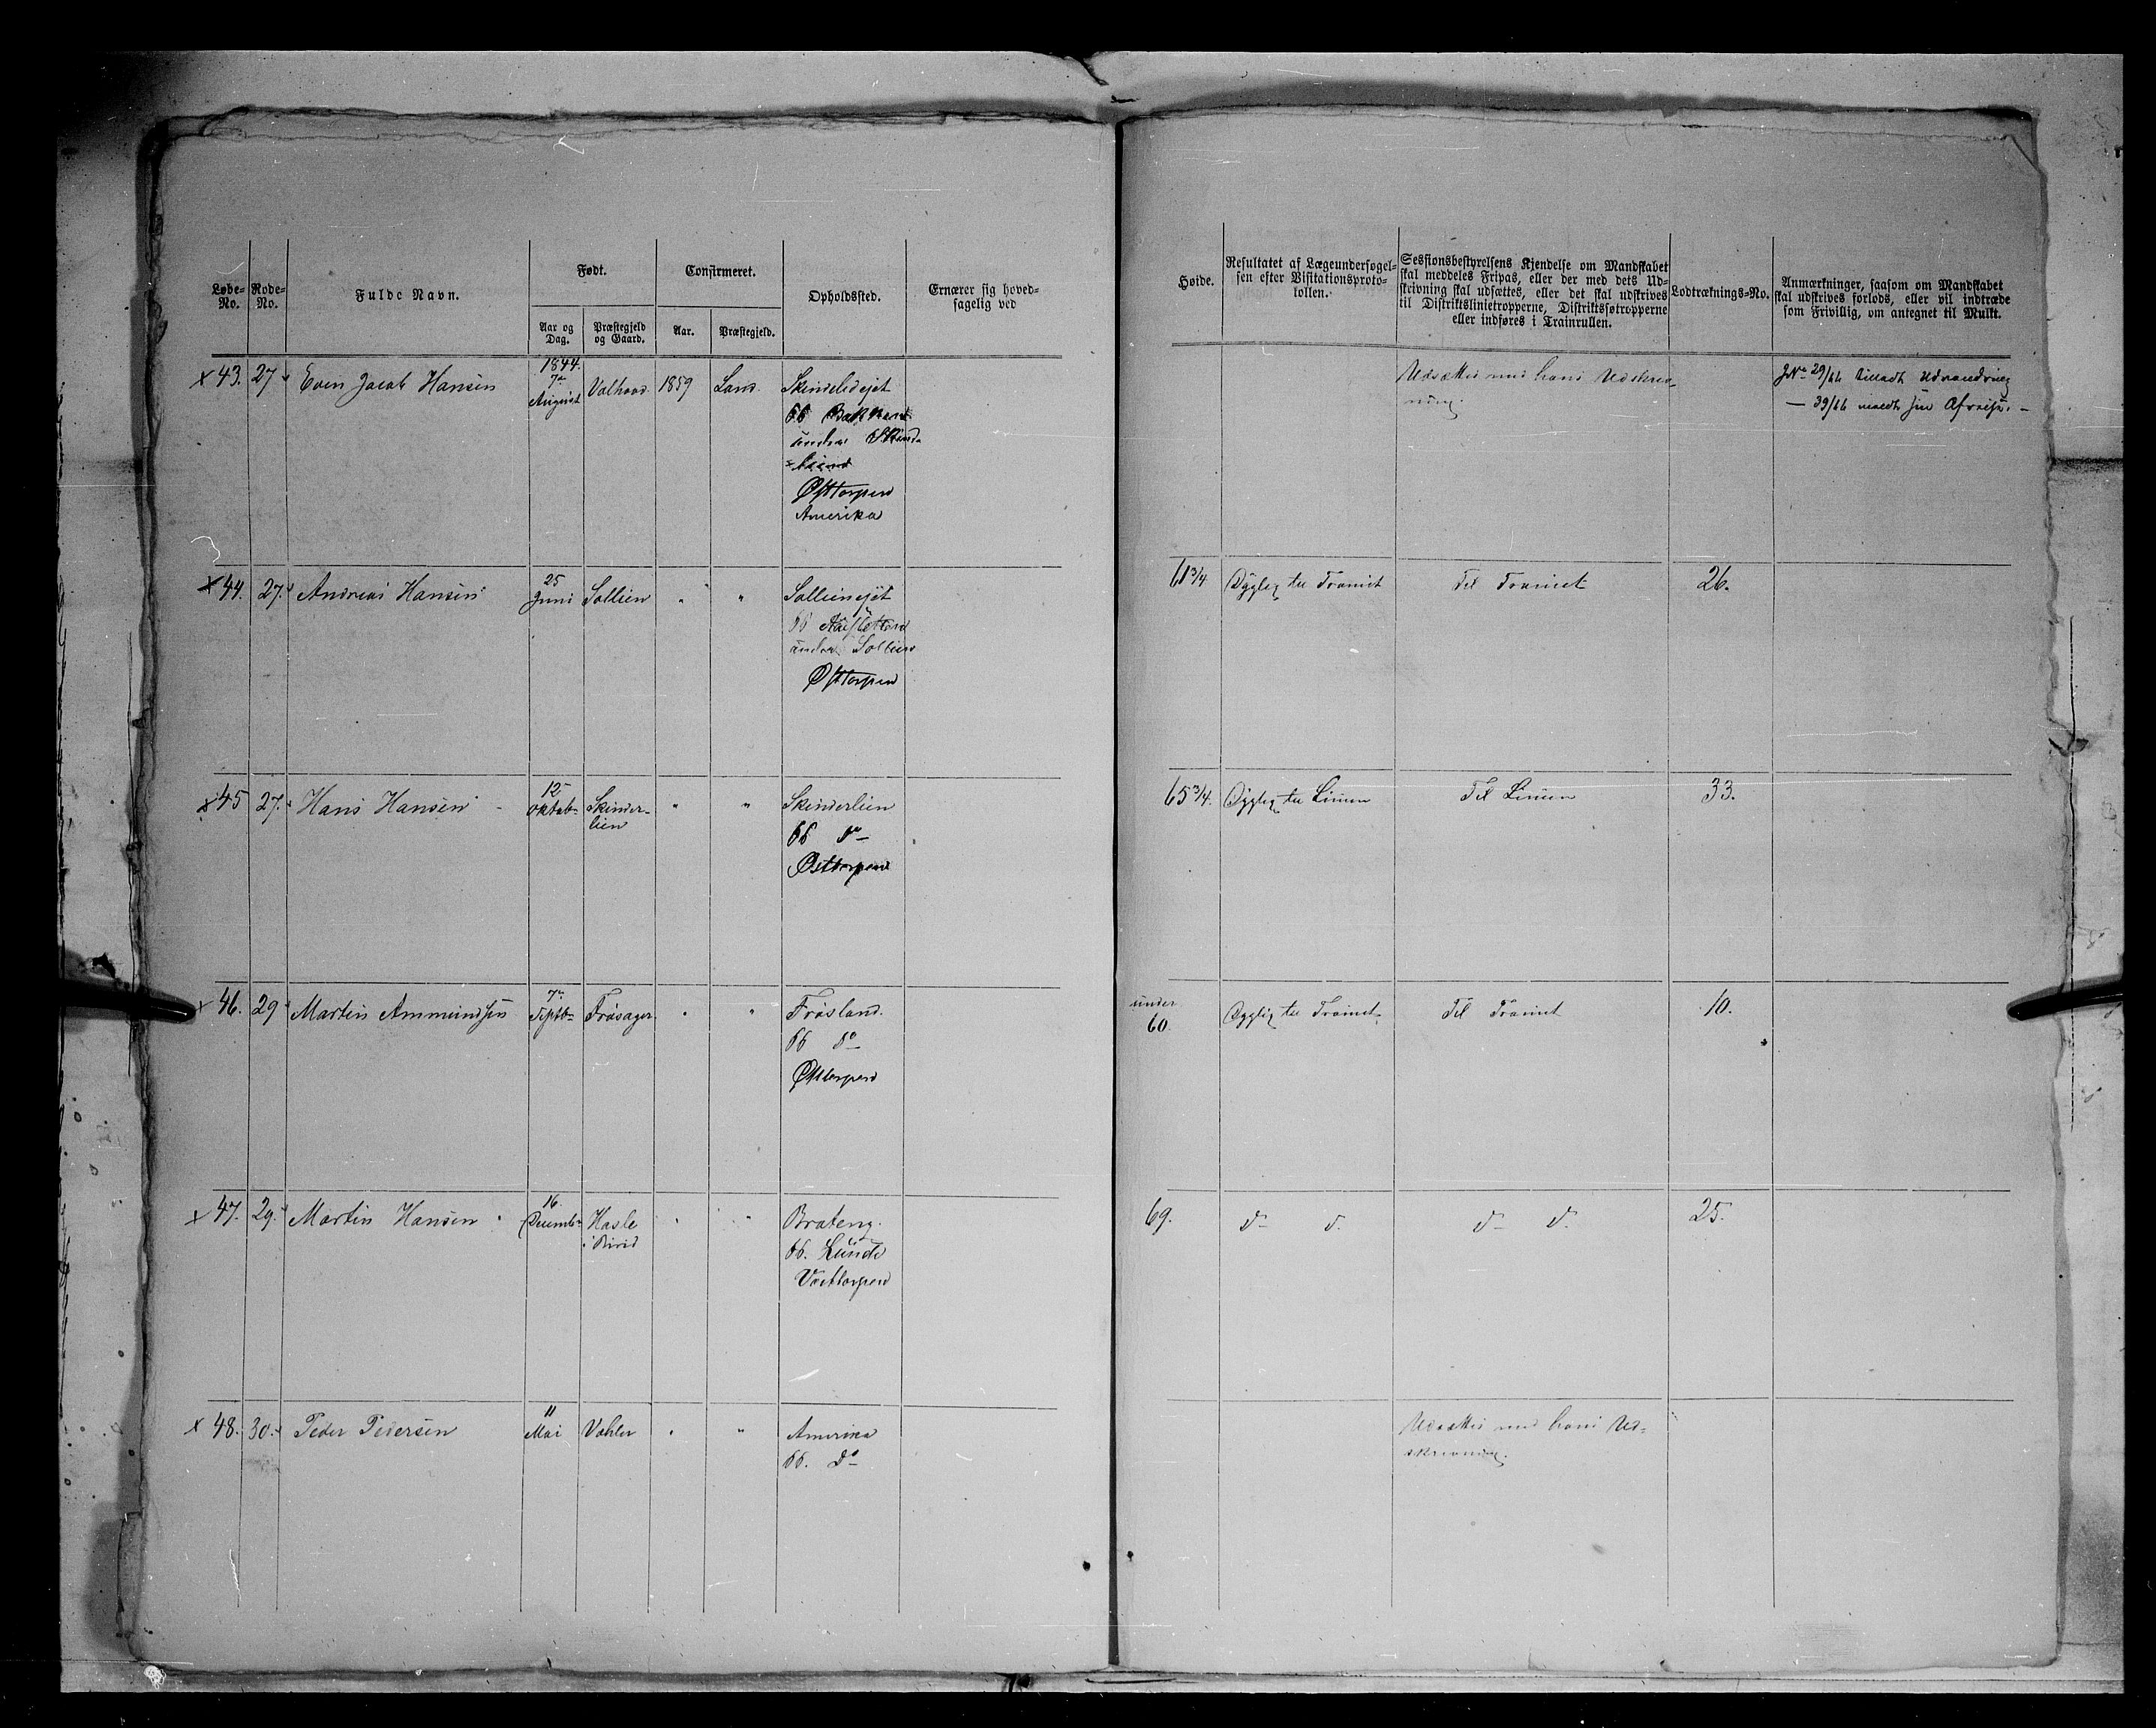 Løbe-No.
Rode-No.
Fulde Navn.
Født.
Aar og Dag.
Præstegjeld og Gaard.
Confirmeret.
Aar.
Præstegjeld.
Opholdssted.
Ernærer sig hoved-
sagelig ved
Høide.
Resultatet af Lægeundersøgel-
sen efter Visitationsproto-
kollen.
Sessionsbestyrelsens Kjendelse om Mandskabet
skal meddeles Fripas, eller der med dets Ud-
skrivning skal udsættes, eller det skal udskrives
til Distriktslinietropperne, Distriktsføtropperne
eller indføres i Trainrullen.
Lodtræknings-No.
Anmærkninger, saasom om Mandskabet
skal udskrives forlods, eller vil indtræde
som Frivillig, om antegnet til Mulkt.
1844.
x 43. 27 Even Jacob Hansen 7de August 1859 Land
66 Bakken
under
Østtorpen
Amerika
Udsættes med hans Udskriv-
ning.
JNo 29/66 tilladt Udvandring
— 39/66 meldt sin Afreise. —
x 44. 27. Andreas Hansen 25 Juni Sollien " " Sollieneiet
66
under Sollien
Østtorpen
61 3/4 Dygtig til Trainet Til Trainet 26.
x 45 27. Hans Hansen 12 Oktob- Skinder-
lien " " Skinderlien
66 do
Østtorpen
65 3/4. Dygtig til Linien Til Linien 33.
x 46. 29 Martin Ammundsen 7de Septb- Frøsager " " Frøsland.
66 do
Østtorpen
under
60. Dygtig til Trainet Til Trainet 10.
x 47. 29. Martin Hansen 16. Decemb- Hasle
i Birid " " Brateng.
66. Lunde
Vesttorpen
69. d- d. d- d. 25.
x 48. 30. Peder Pedersen 11 Mai Vahler " " Amerika
66. do
Udsættes med hans Ud-
skrivning.